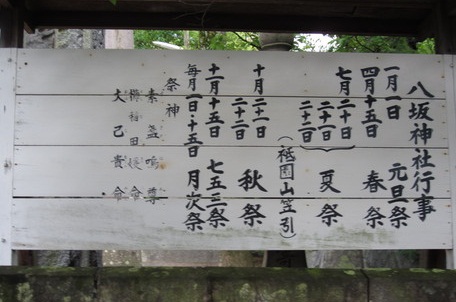 八坂神社行事
一月一日 元旦祭
四月十五日 春祭
七月二十日
二十一日
二十二日
夏祭
(祗園山笠引)
十月二十一日
二十二日
秋祭
十一月十五日 七五三祭
毎月一日・十五日 月次祭
祭神
素盞嗚尊
櫛稲田姫命
大己貴命